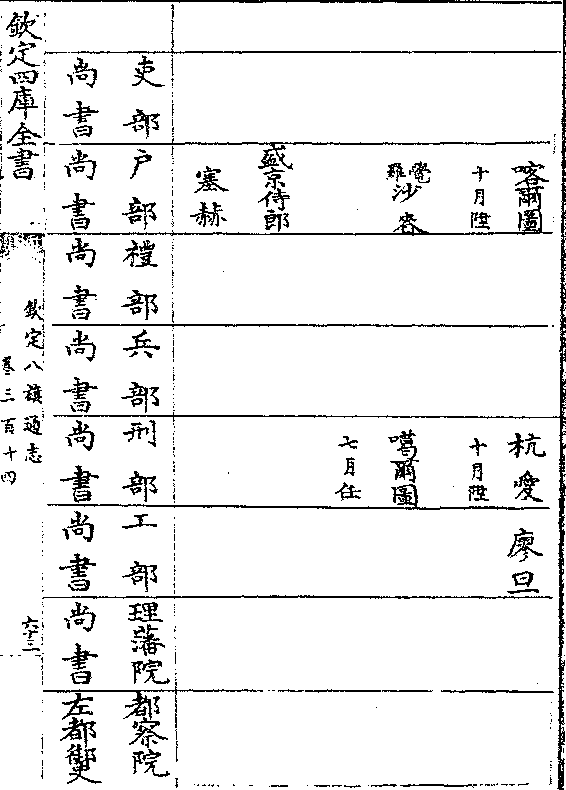 喀爾圖
十月陞
覺羅沙
盛京侍郎
塞赫
杭愛
十月陞
噶爾圖
七月任
廖旦
吏部
尚書
戶部
尚書
禮部
尚書
兵部
尚書
刑部
尚書
工部
尚書
理藩院
尚書
都察院
左都御史
欽定四庫全書
欽定八旗通志
卷三百十四
六十三